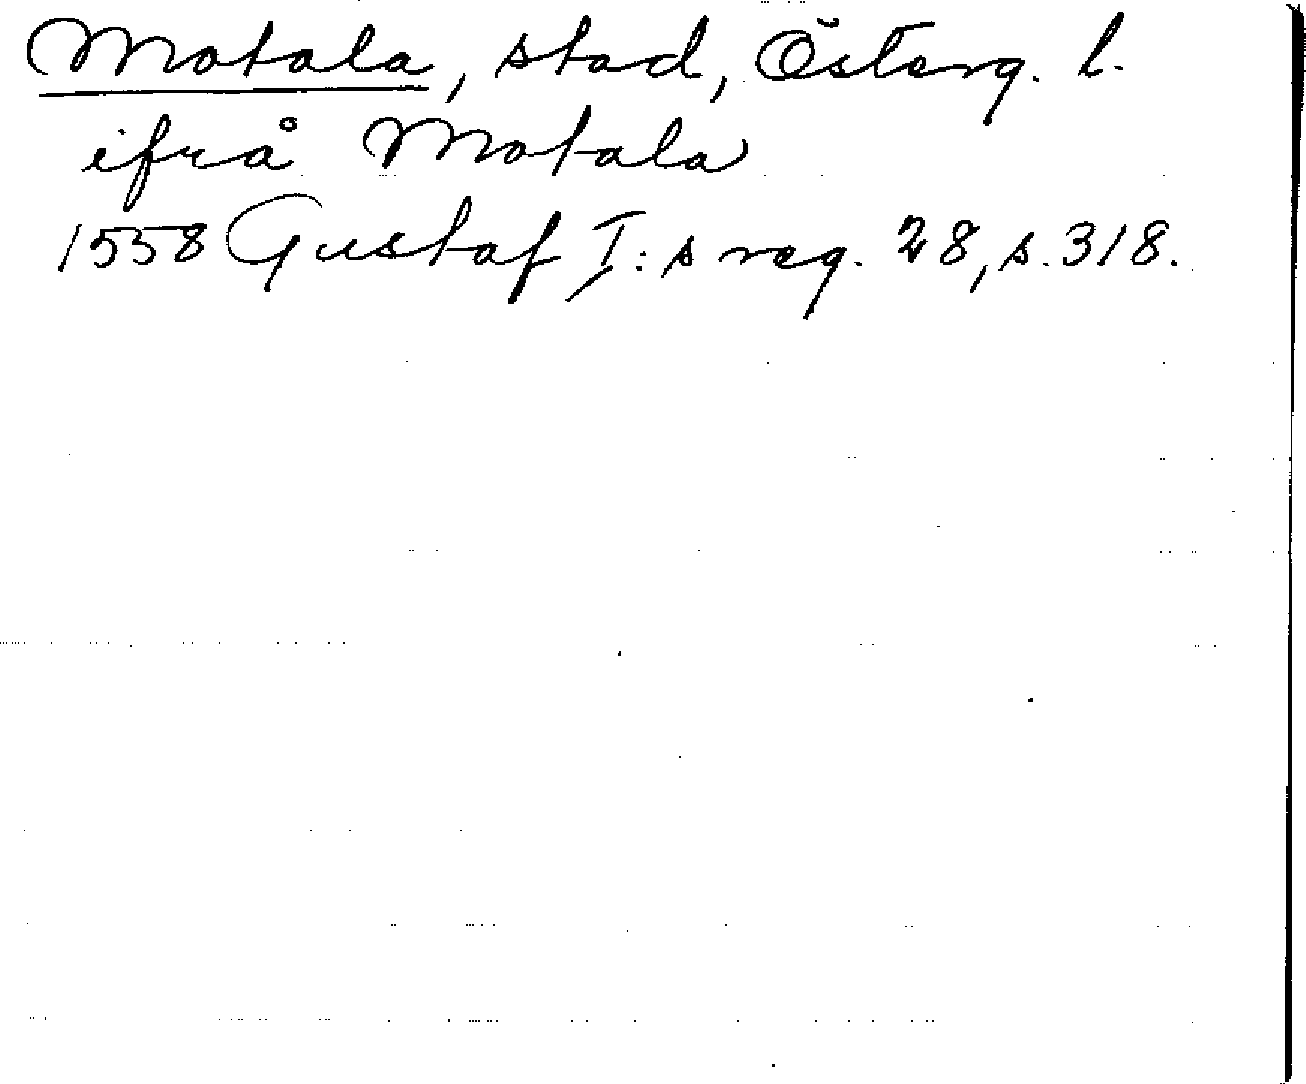 Motala, stad, Österg. l.
ifrå Motala
1558 Gustaf I:s reg. 28, s. 318.